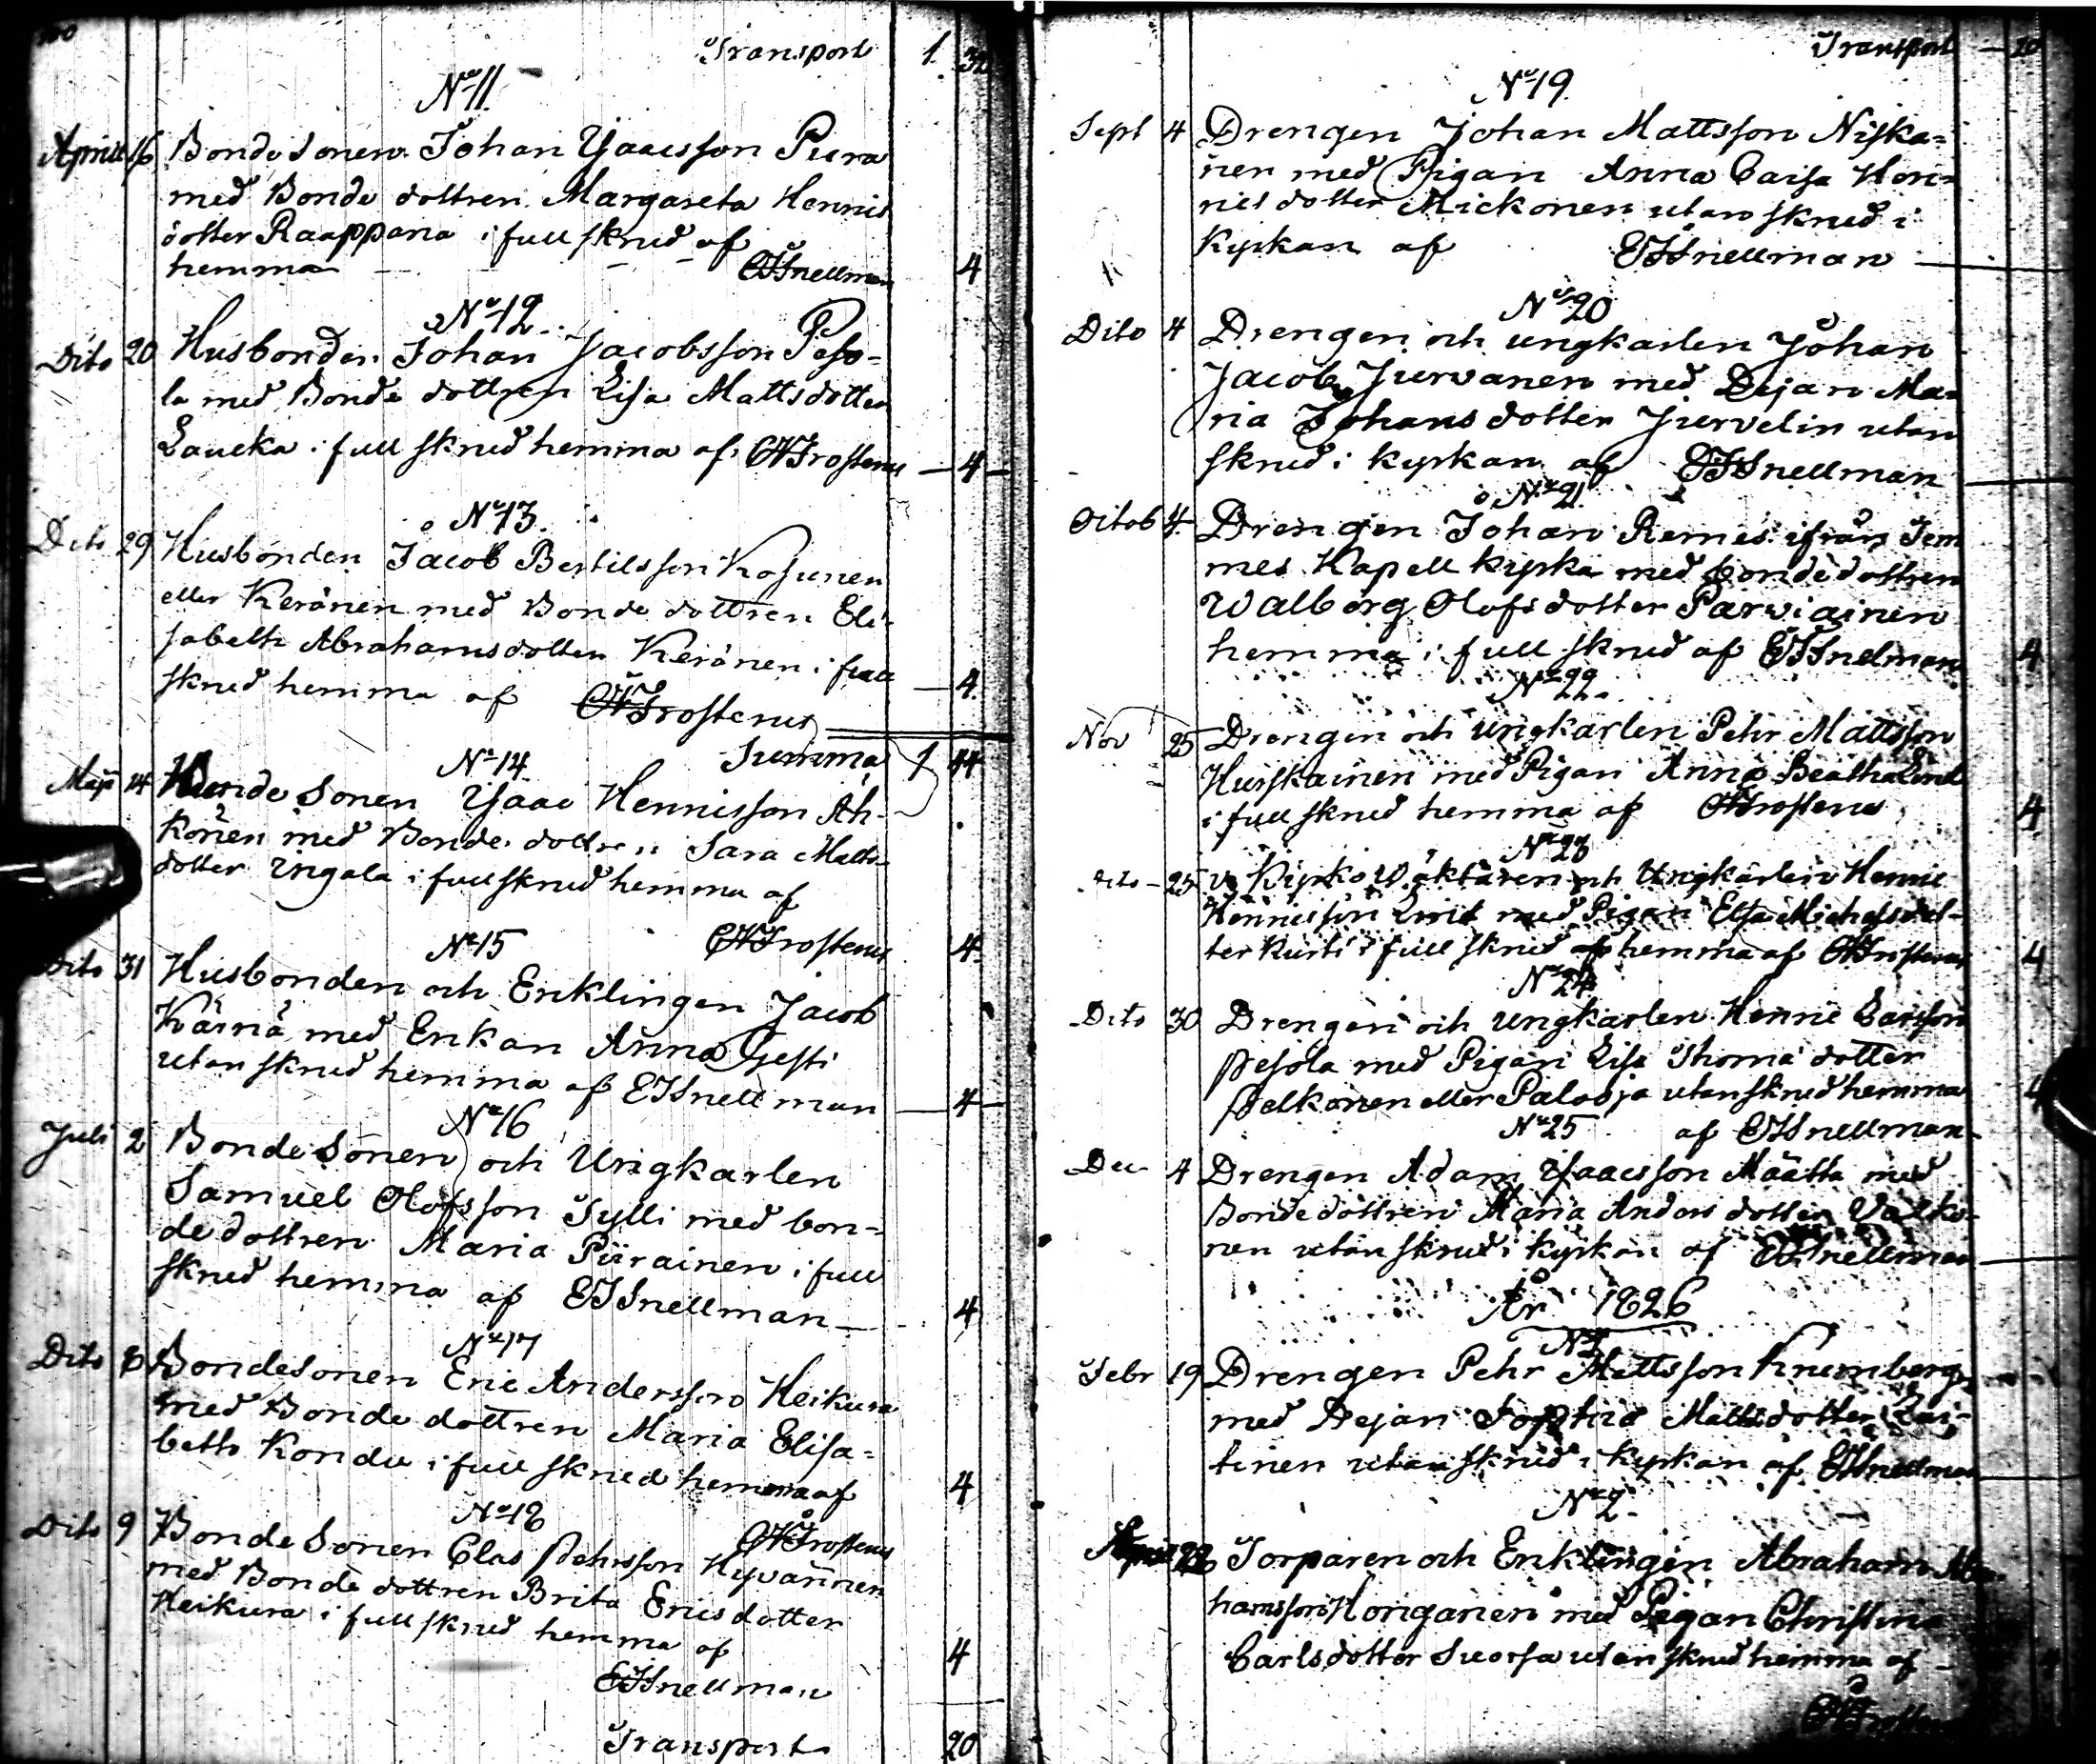 100
Transport 1. 32
No 11
Aprill 16 Bonde Sonen Johan Ysaacsson Piira
med Bonde dottren Margareta Hennis
dotter Raappana i full skrud af
hemma EJSnellman 4
No 12
Dito 20 Husbonden Johan Jacobsson Peso-
la med Bonde dottren Lisa Mattsdotter
Laucka i full skrud hemma af CHFrosterus 4
No 13.
Dito 29 Husbonden Jacob Bertilsson Kosunen
eller Keränen med Bonde dottren Eli-
sabeth Abrahamsdotter Keränen i full
skrud hemma af CHFrosterus 4
Summa 1 44
No 14.
Maji 14 Bonde Sonen Ysaac Hennisson Ah-
konen med Bonde dottren Sara Matts
dotter Yngala i full skrud hemma af
CHFrosterus 4
No 15
Dito 31 Husbonden och Enklingen Jacob
Kärnä med Enkan Anna
utan skrud hemma af EJSnellman 4
No 16
Juli 2 Bonde Sonen och Ungkarlen
Samuel Olofsson Sylli med bon-
de dottren Maria Piirainen i full
skrud hemma af EJSnellman 4
No 17
Dito 8 Bondesonen Eric Andersson Heikura
med Bonde dottren Maria Elisa-
beth Kondu i full skrud hemma af 4
No 18
CHFrosterus
Dito 9 Bonde Sonen Clas Pehrsson Hyvännen
med Bonde dottren Brita Ericsdotter
Heikura i full skrud hemma af 4
EJSnellman
Transport 20
Transport 20
No 19
Sept 4 Drengen Johan Mattsson Niska-
nen med Pigan Anna Caisa Hen-
ries dotter Mickonen utan skrud i
Kyrkan af EJSnellman
No 20
Dito 4 Drengen och ungkarlen Johan
Jacob Jurvanen med Dejan Ma-
ria Johans dotter Jurvelin utan
skrud i kyrkan af EJSnellman
No 21
Octob 4 Drengen Johan Remes ifrån Tem
mes Kapell kyrka med bonde dottren
Walborg Olofsdotter Parviainen
hemma i full skrud af EJSnelman 4
No 22
Nov 25 Drengen och ungkarlen Pehr Mattsson
Hurskainen med Pigan Anna Beatha Lind
i full skrud hemma af CHFrosterus 4
No 23
Dito 25 Kyrko Wäktaren och Ungkarlen Henric
Hennisson med Pigan Elsa Michelsdot-
ter Kurti i full skrud hemma af CHFrosterus 4
No 24
Dito 30 Drengen och ungkarlen Henric Larsson
Pesola med Pigan Lisa Thoma dotter
Pelkonen eller Palooja utan skrud hemma 4
No 25 af EJSnellman
Dec 4 Drengen Adam Ysaacsson Määtta med
Bonde dottren Maria Anders dotter Valko-
nen utan skrud i kyrkan af EJSnellman
År 1826
No 1
Febr 19 Drengen Pehr Mattsson Kremberg
med Dejan Sophia Matts dotter
tinen utan skrud i kyrkan af EJSnellman
No 2
Torparen och Enklingen Abraham Abra-
hamsson Honganen med Pigan Christina
Carlsdotter Suorsa utan skrud hemma af